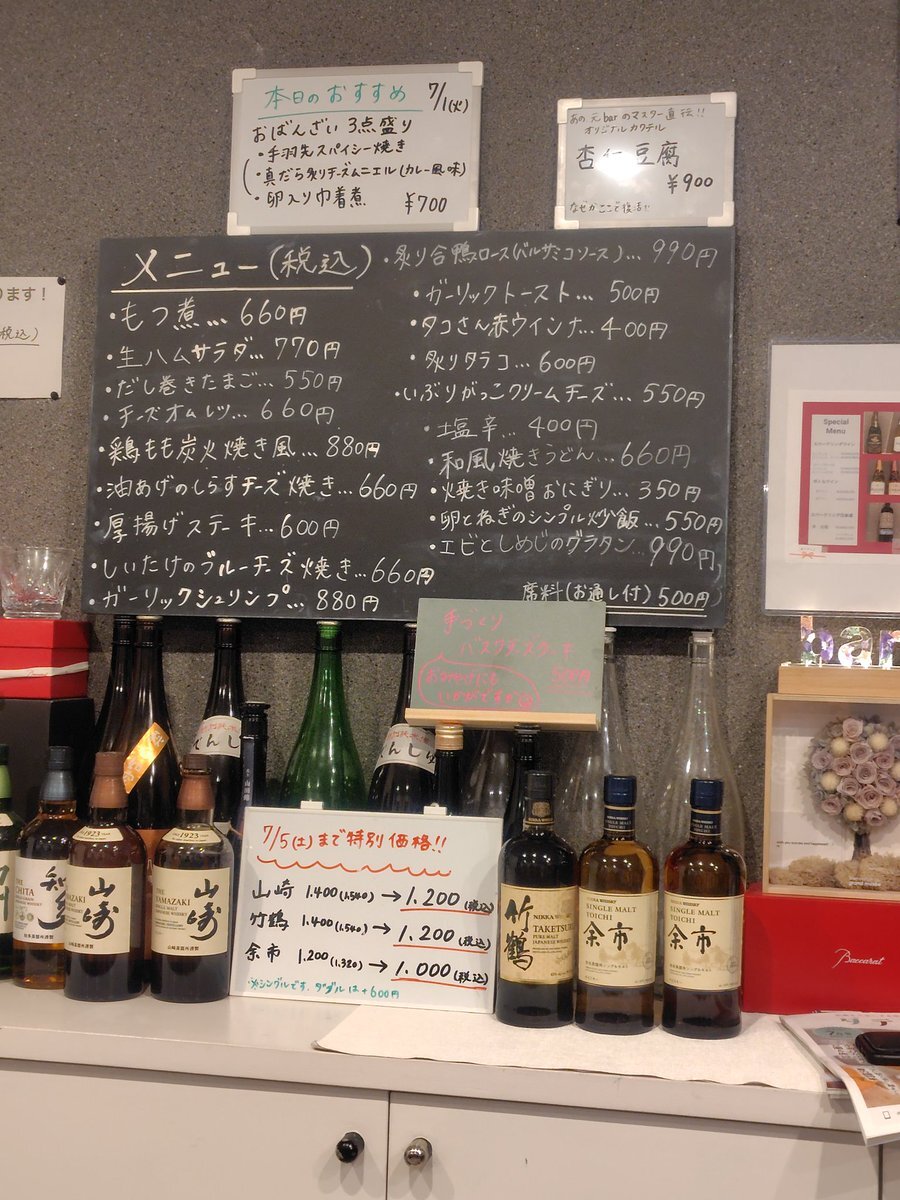 本日のおすすめ 7/1(火)
おばんざい 3点盛り
・手羽先スパイシー焼き
・真だら炙りチーズムニエル(カレー風味)
・卵入り巾着煮 ¥700
あの元barのマスター直伝!!
オリジナルカクテル
杏仁豆腐
¥900
なぜかここで復活!!
ります!
税込)
メニュー(税込)
・もつ煮... 660円
・生ハムサラダ... 770円
・だし巻きたまご... 550円
・チーズオムレツ... 660円
・鶏もも炭火焼き風... 880円
・油あげのしらすチーズ焼き... 660円
・厚揚げステーキ... 600円
・しいたけのブルーチーズ焼き... 660円
・ガーリックシュリンプ... 880円
・炙り合鴨ロース(バルサミコソース)... 990円
・ガーリックトースト... 500円
・タコさん赤ウインナ... 400円
・炙りタラコ... 600円
・いぶりがっこクリームチーズ... 550円
・塩辛... 400円
・和風焼きうどん... 660円
・焼き味噌おにぎり... 350円
・卵とねぎのシンプル炒飯... 550円
・エビとしめじのグラタン... 990円
席料(お通し付) 500円
Special
Menu
手づくり
バスクチーズケーキ
おみやげにも
いかがですか
bar
7/5(土)まで特別価格!!
山崎 1.400(1.540) → 1.200(税込)
竹鶴 1.400(1.540) → 1.200(税込)
余市 1.200(1.320) → 1.000(税込)
※シングルです。ダブルは+600円
知多
1923
山崎
THE
YAMAZAKI
山崎
竹鶴
NIKKA WHISKY
TAKETSURU
PURE MALT
NIKKA WHISKY
SINGLE MALT
YOICHI
余市
NIKKA WHISKY
SINGLE MALT
YOICHI
余市
Baccarat